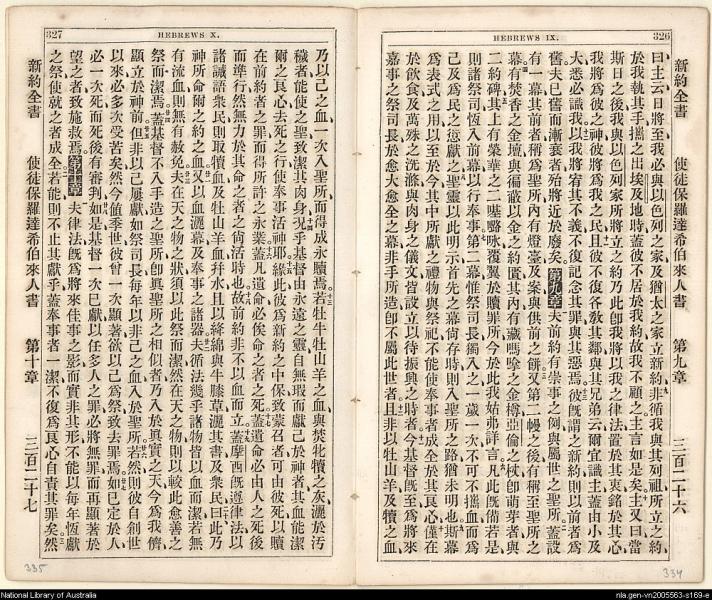 326
HEBREWS IX.
新約全書 使徒保羅達希伯來人書 第九章 三百二十六
曰主云日將至我必與以色列之家及猶太之家立新約非循我與其列祖所立之約
於我執其手攜之出埃及地時蓋彼不居於我約故我不顧之主言如是矣主又曰當
斯日之後我與以色列家所將立之約乃此卽我將以我之律法置於其衷銘於其心
我將爲彼之神彼將爲我之民且彼不復各敎其鄰與其兄弟云爾宜識主蓋由小及
大悉必識我以我將宥其不義不復記念其罪與其惡焉彼旣謂之新約則以前者爲
舊夫已舊而漸衰者殆將近於廢矣第九章夫前約有崇事之例與屬世之聖所蓋設
有一幕其前者稱爲聖所內有燈臺及案與供前之餅又第二幔之後有稱至聖所之
幕有焚香之金壇與徧蔽以金之約匱其內有藏嗎之金樽亞倫之杖卽萌芽者與
二約碑其上有榮華之二覆翼於贖罪所今於此我姑弗詳言凡此旣備若是
則諸祭司恆入前幕以行奉事第二幕惟祭司長獨入之一歲一次不可不攜血而爲
己及爲民之愆獻之聖靈以此明示首先之幕尙存時則入聖所之路猶未明也斯幕
爲表式之用以至於今其中所獻之禮物與祭祀不能使奉事者成全於其良心僅在
於飲食及萬殊之洗滌與肉身之儀文皆設立以待振興之時者今基督旣至爲將來
嘉事之祭司長於愈大愈全之幕非手所造卽不屬此世者且非以牡山羊及犢之血
334
327
HEBREWS X.
乃以己之血一次入聖所而得成永贖焉若牡牛牡山羊之血與焚牝犢之灰灑於污
穢者能使之聖致潔其肉身況乎基督由永遠之靈自無瑕而獻己於神者其血能潔
爾之良心去死之行使奉事活神耶緣此彼爲新約之中保致蒙召者可由彼死以贖
在前約者之罪而得所許之永業蓋凡遺命必俟命之者之死蓋遺命必由人之死後
而準行然無力於其命之者尙活時也故前約非不以血而立蓋摩西旣遵律法以
諸誡語衆民則取犢血及牡山羊血幷水且以絳綿與牛膝草灑其書及衆民曰此乃
神所命爾之約之血又以血灑幕及奉事之諸器夫循法幾乎諸物皆以血而潔若無
有流血則無有赦免夫在天之物之狀須以此祭而潔然在天之物則以較此愈善之
祭而潔焉蓋基督不入手造之聖所卽眞聖所之相似者乃入於眞實之天今爲我儕
顯立於神前但非以己屢獻如祭司長每年以非己之血入於聖所若然則彼自創世
以來必多次受苦矣然今値季世彼曾一次顯著欲以己爲祭致去罪焉如已定於人
必一次死而死後有審判如是基督一次已獻以任多人之罪必將無罪而再顯著於
望之者致施救焉第十章夫律法旣爲將來佳事之影而實非其形不能以每年恆獻
之祭使就之者成全若能則不止其獻乎蓋奉事者一潔不復爲良心自責其罪矣然
新約全書 使徒保羅達希伯來人書 第十章 三百二十七
335
National Library of Australia
nla.gen-vn2005563-s169-e